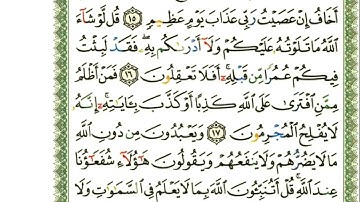 أَخَافُ إِنْ عَصَيْتُ رَبِّي عَذَابَ يَوْمٍ عَظِيمٍ ١٥ قُل لَّوْ شَآءَ
ٱللَّهُ مَا تَلَوْتُهُۥ عَلَيْكُمْ وَلَآ أَدْرَىٰكُم بِهِۦۖ فَقَدْ لَبِثْتُ
فِيكُمْ عُمُرًا مِّن قَبْلِهِۦٓۚ أَفَلَا تَعْقِلُونَ ١٦ فَمَنْ أَظْلَمُ
مِمَّنِ ٱفْتَرَىٰ عَلَى ٱللَّهِ كَذِبًا أَوْ كَذَّبَ بِـَٔايَـٰتِهِۦٓۚ إِنَّهُۥ
لَا يُفْلِحُ ٱلْمُجْرِمُونَ ١٧ وَيَعْبُدُونَ مِن دُونِ ٱللَّهِ
مَا لَا يَضُرُّهُمْ وَلَا يَنفَعُهُمْ وَيَقُولُونَ هَـٰٓؤُلَآءِ شُفَعَـٰٓؤُنَا
عِندَ ٱللَّهِۚ قُلْ أَتُنَبِّـُٔونَ ٱللَّهَ بِمَا لَا يَعْلَمُ فِي ٱلسَّمَـٰوَٰتِ وَلَا